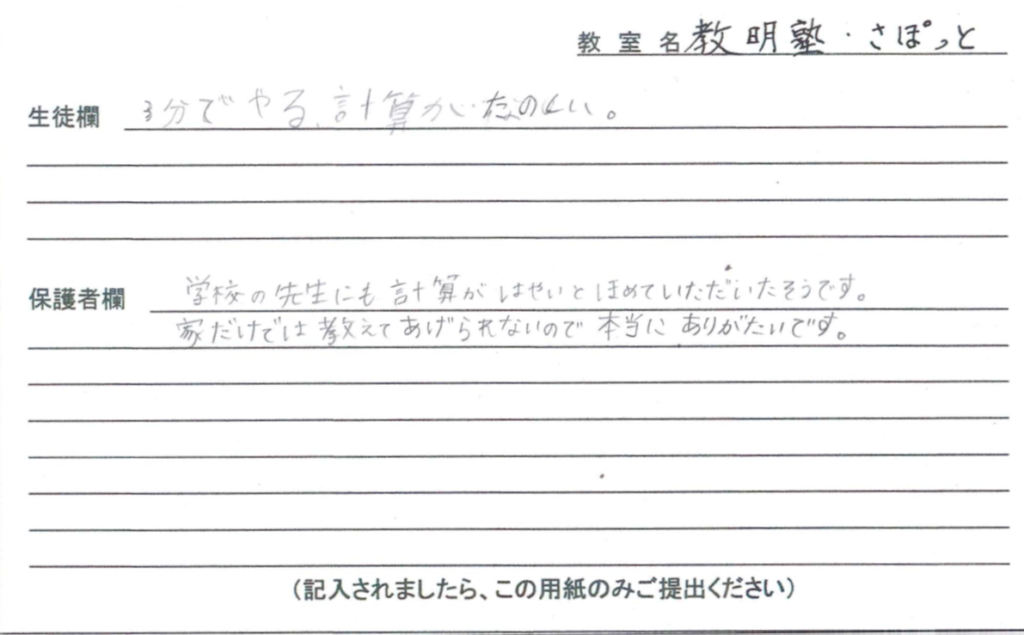 教室名 教明塾・さぽっと
生徒欄 3分でやる、計算がたのしい。
保護者欄 学校の先生にも計算がはやいとほめていただいたそうです。
家だけでは教えてあげられないので本当にありがたいです。
（記入されましたら、この用紙のみご提出ください）